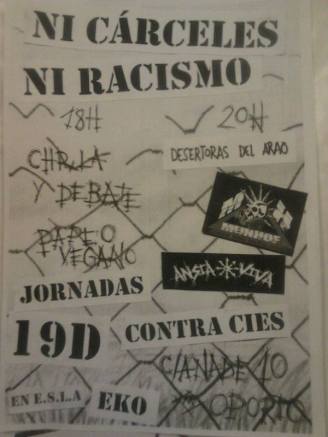 NI CÁRCELES
NI RACISMO
18H
CHARLA
Y DEBATE
PAPEO
VEGANO
20H
DESERTORAS DEL ARAO
MUNHOF
ANSIA VIVA
JORNADAS
19D CONTRA CIES
EN E.S.L.A EKO
C/ANADE 10
OPORTO